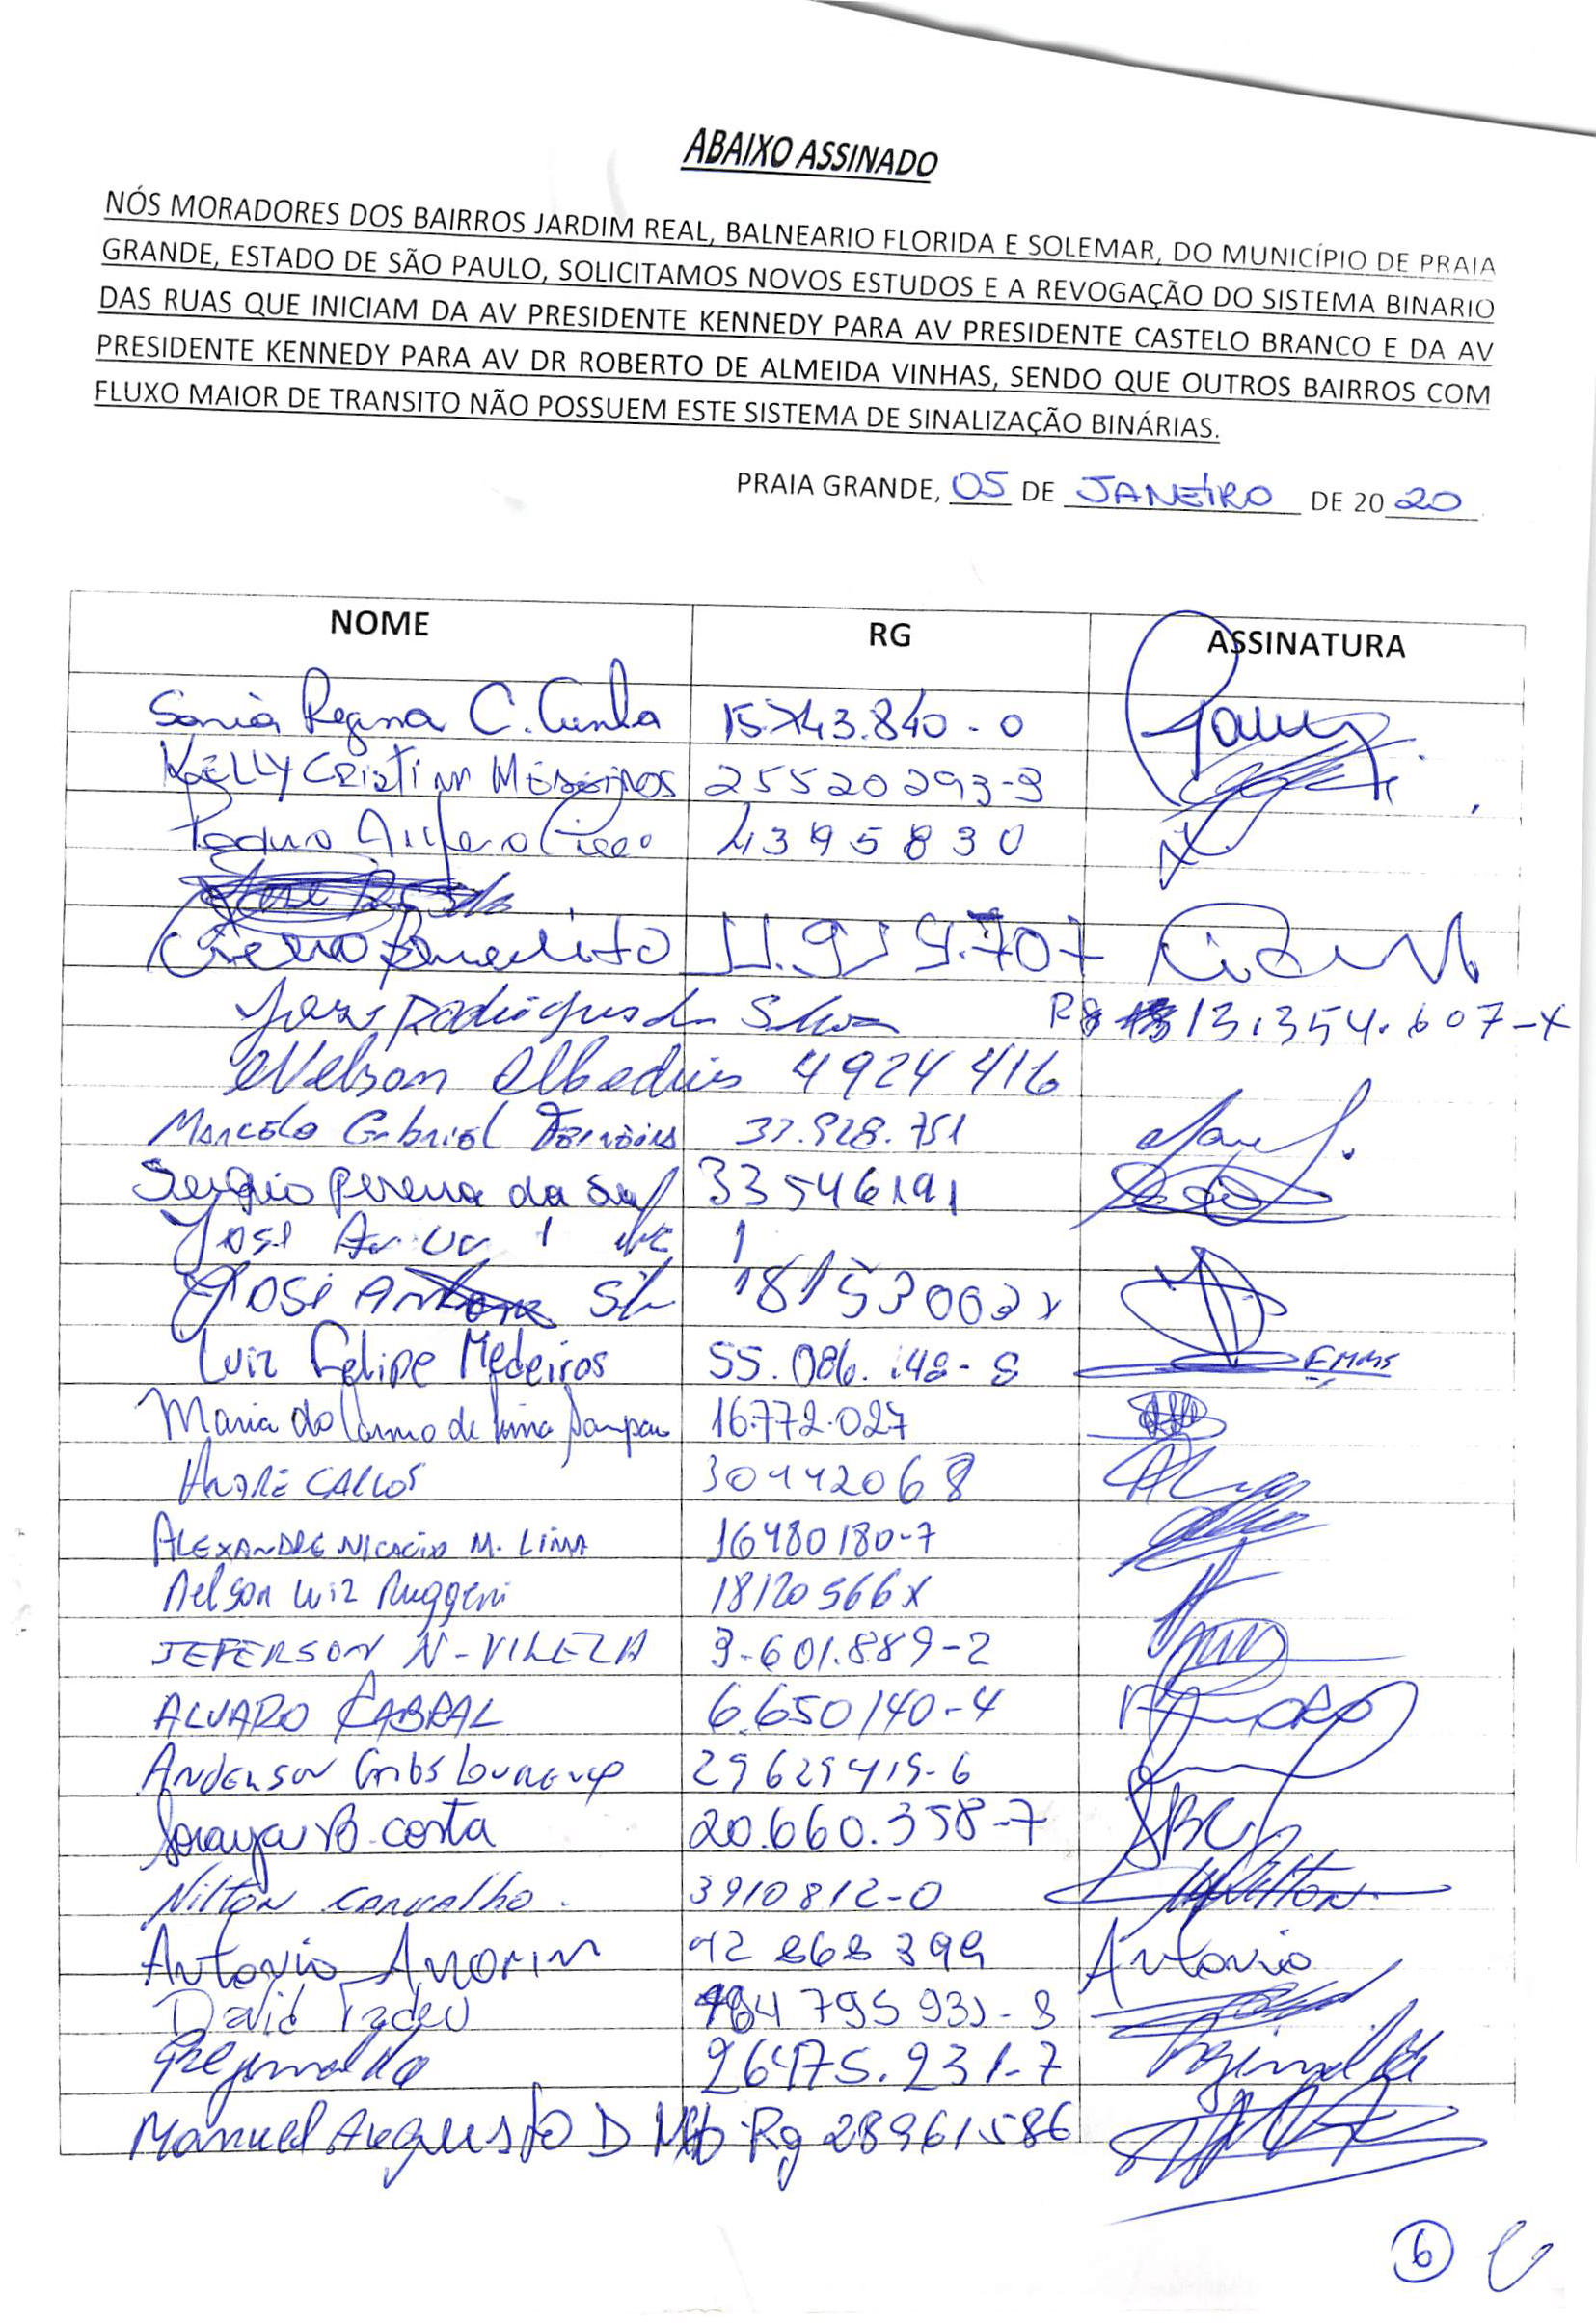 ABAIXO ASSINADO
NÓS MORADORES DOS BAIRROS JARDIM REAL, BALNEARIO FLORIDA E SOLEMAR, DO MUNICÍPIO DE PRAIA
GRANDE, ESTADO DE SÃO PAULO, SOLICITAMOS NOVOS ESTUDOS E A REVOGAÇÃO DO SISTEMA BINARIO
DAS RUAS QUE INICIAM DA AV PRESIDENTE KENNEDY PARA AV PRESIDENTE CASTELO BRANCO E DA AV
PRESIDENTE KENNEDY PARA AV DR ROBERTO DE ALMEIDA VINHAS, SENDO QUE OUTROS BAIRROS COM
FLUXO MAIOR DE TRANSITO NÃO POSSUEM ESTE SISTEMA DE SINALIZAÇÃO BINÁRIAS.
PRAIA GRANDE, 05 DE JANEIRO DE 2020
NOME RG ASSINATURA
Sonia Regina C. Cunha 15.743.840-0
KELLY CRISTINA 25520293-9
4395830
Benedito
José Rodrigues da Silva RG 13.354.607-X
Nelson 4924416
Marcelo Gabriel
Sergio Pereira da 33546191
José
José
Luiz Felipe Medeiros 55.086.148-8
Maria do Carmo de Lima 16.772.027
ANDRÉ CARLOS 30442068
ALEXANDRE NICACIO M. LIMA 16480180-7
Nelson Luiz Ruggeri 18120566X
JEFERSON N-VILELA 9-601.889-2
ALVARO CABRAL 6.650140-4
ANDERSON LOURENÇO 29629419-6
Soraya B. costa 20.660.358-7 SBC
Nilton Carvalho. 3910812-0 Nilton
Antonio Amorim 42 868 399 Antonio
David Tadeu
Reginaldo 26475.231-7 Reginaldo
Manuel Augusto D Rg 28961586
6